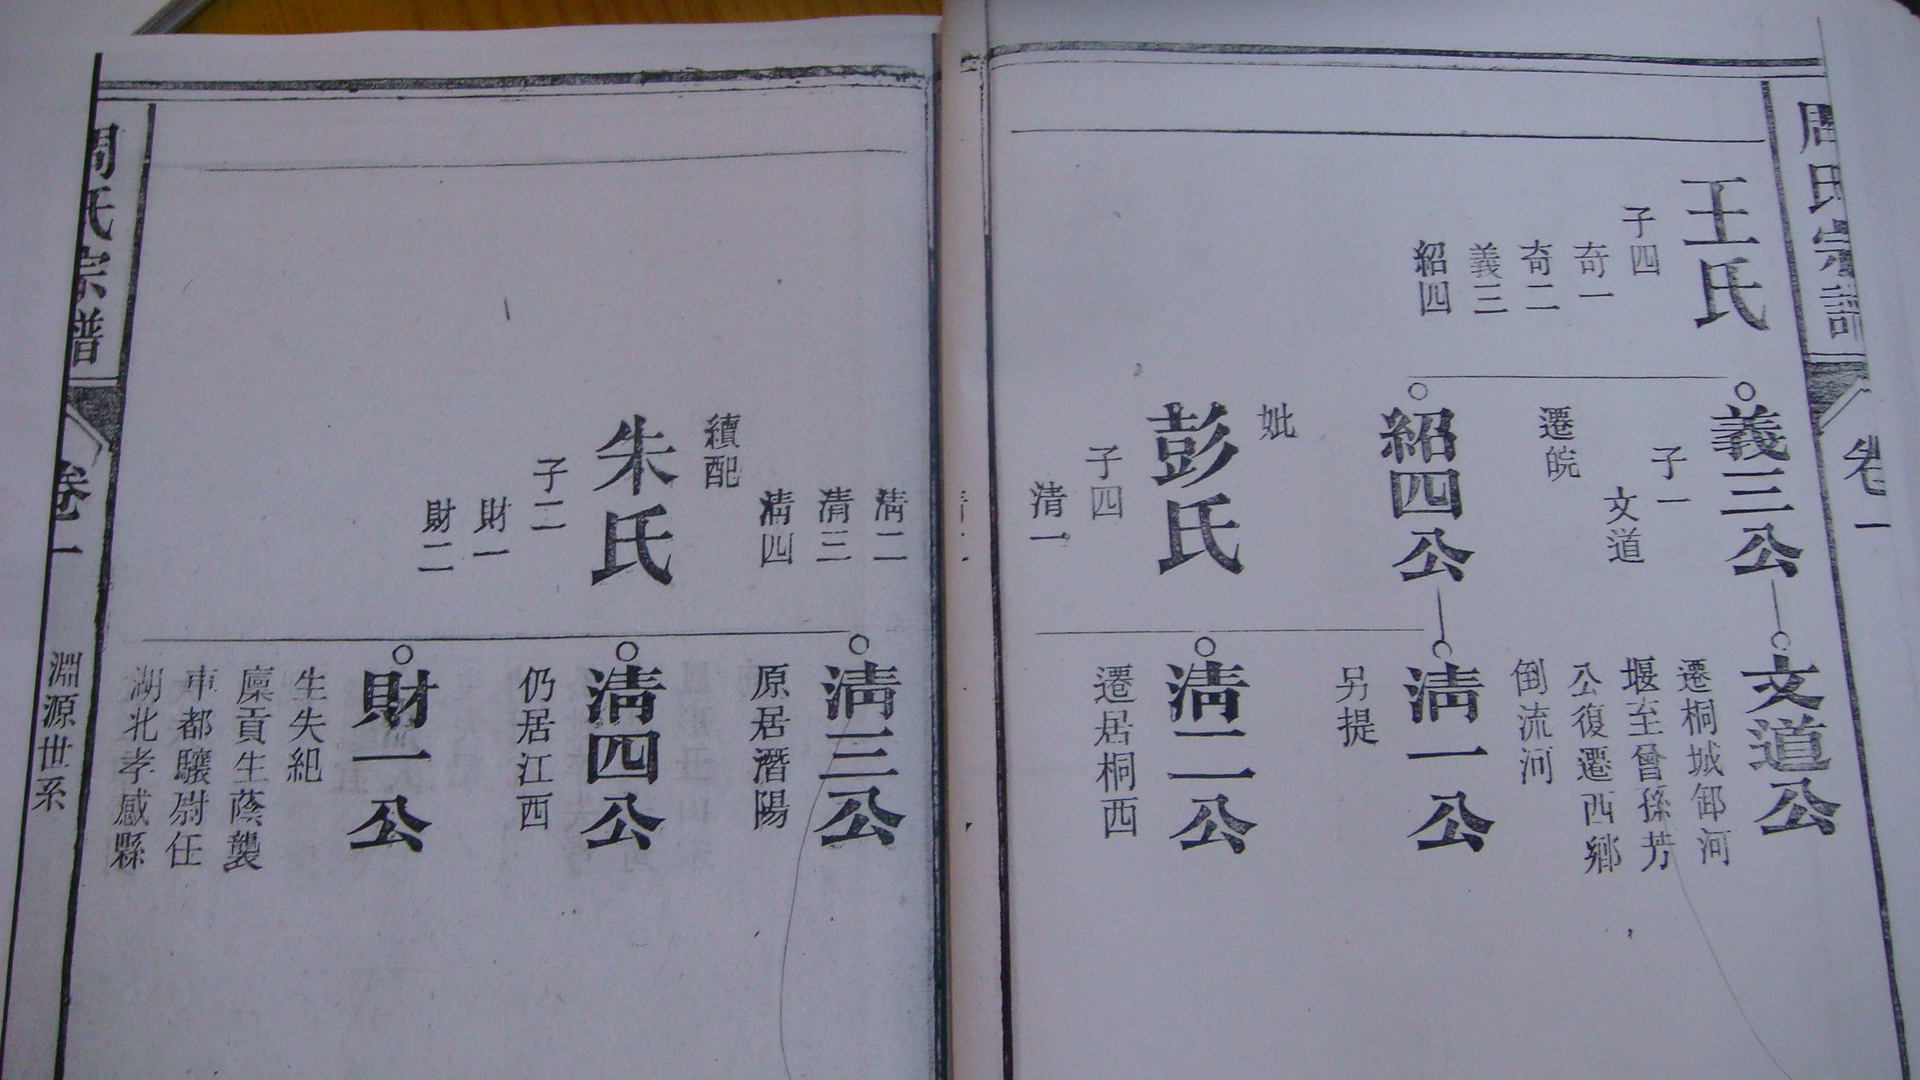 周氏宗譜
卷一
王氏
子四
奇一
奇二
義三
紹四
義三公
子一
文道
遷皖
文道公
遷桓城邱河
堰至曾孫芳
公復遷西鄉
倒流河
紹四公
妣
彭氏
子四
清一
清一公
另提
清二公
遷居桐西
清二
清三
清四
續配
朱氏
子二
財一
財二
清三公
原居潛陽
清四公
仍居江西
財一公
生失紀
廩貢生蔭襲
車都驤尉任
湖北孝感縣
周氏宗譜
卷一
淵源世系